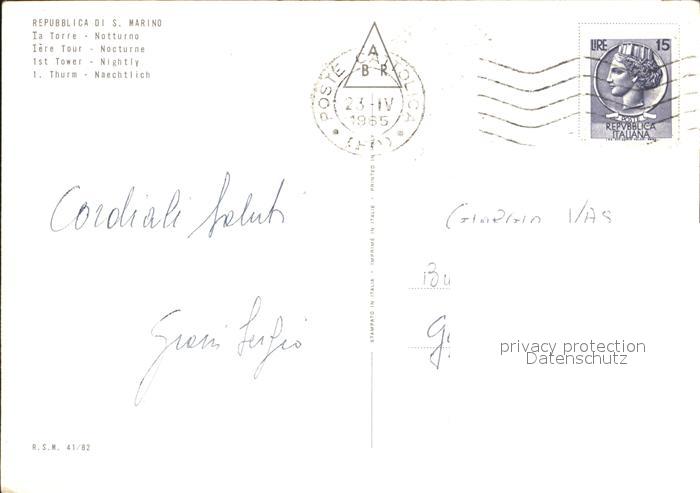 REPUBBLICA DI S. MARINO
Ia Torre - Notturno
Ière Tour - Nocturne
1st Tower - Nightly
1. Thurm - Naechtlich
A
B R
POSTE CATTOLICA
23-IV
1965
LIRE 15
POSTE
REPVBBLICA
ITALIANA
Cordiali Saluti
STAMPATO IN ITALIA - IMPRIMÉ IN ITALIA - PRINTED IN ITALY
Bu
privacy protection
Datenschutz
R.S.M. 41/82